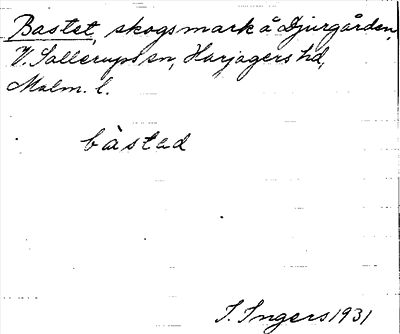 Bastet, skogsmark å Djurgården,
V. Sallerups sn, Harjagers hd,
Malm. l.
bàstad
I. Ingers 1931